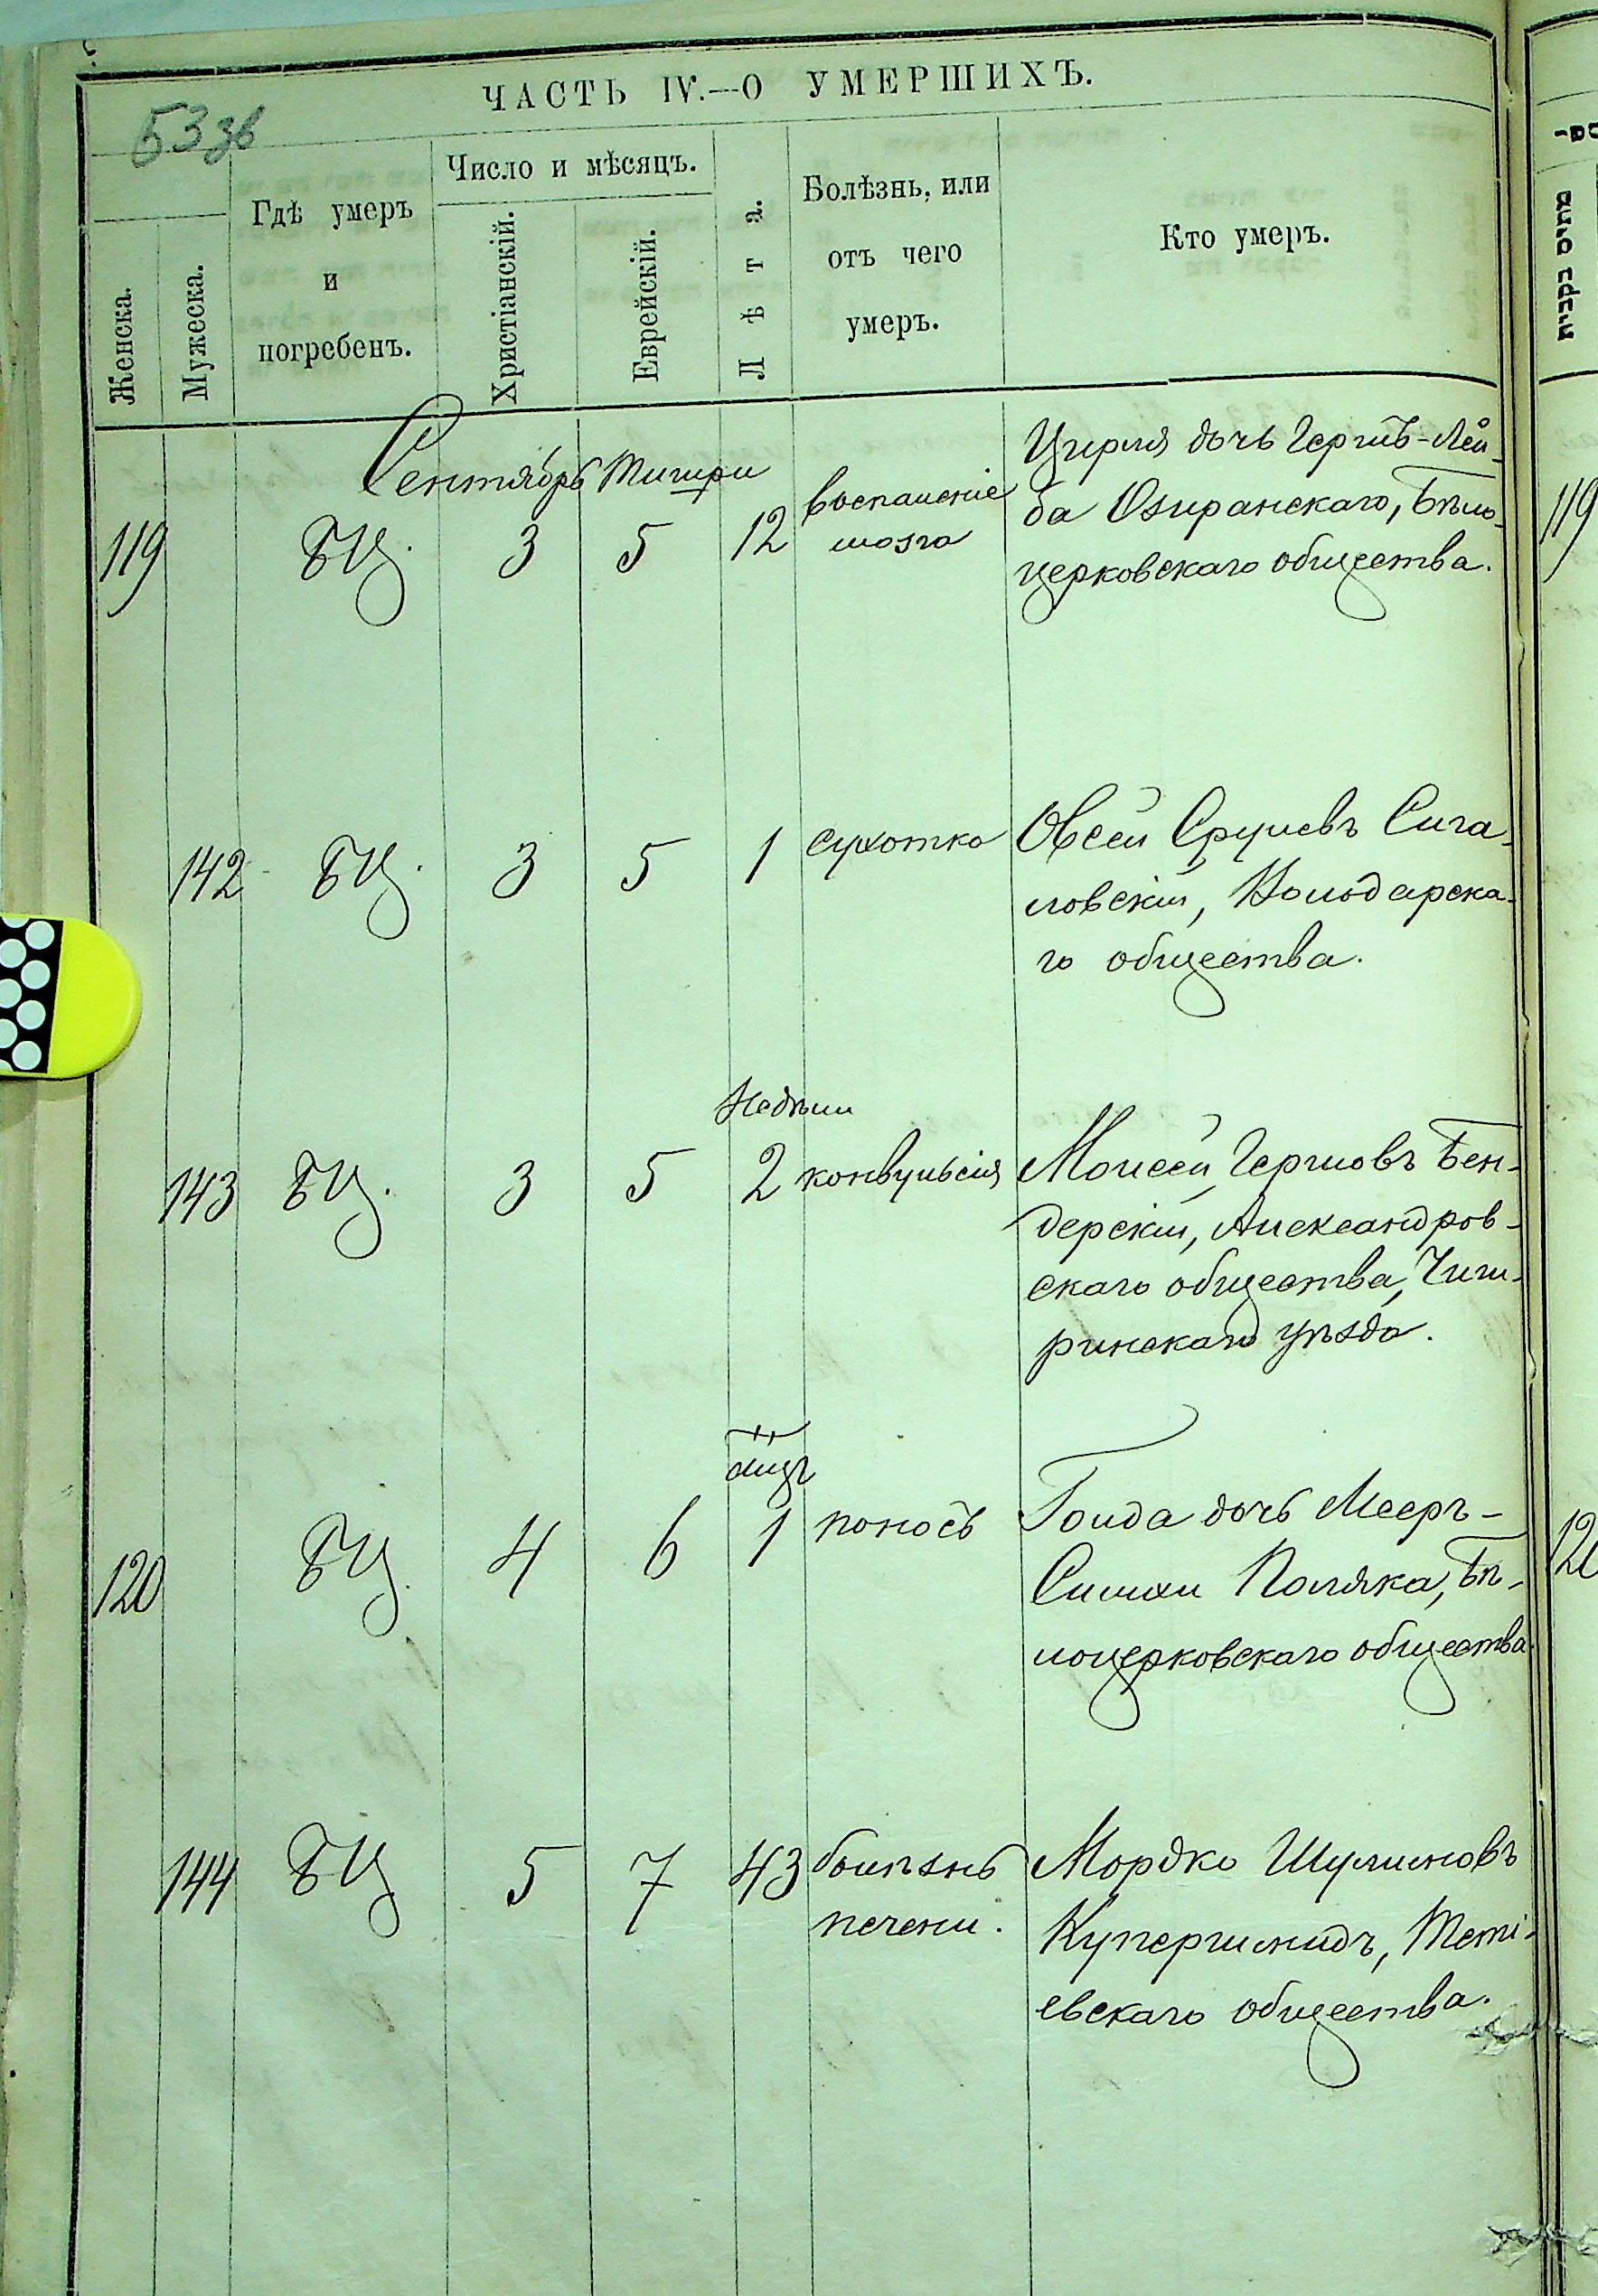 ЧАСТЬ IV.—О УМЕРШИХЪ.
53 зв
Женска.
Мужеска.
Гдѣ умеръ
и
погребенъ.
Число и мѣсяцъ.
Христіанскій.
Еврейскій.
Лѣта.
Болѣзнь, или
отъ чего
умеръ.
Кто умеръ.
Сентябрь Тишри
119 БЦ. 3 5 12
воспаленіе
мозга
Цирля дочь Гершъ-Лей-
ба Озиранскаго, Бѣло-
церковскаго общества.
119
142 БЦ. 3 5 1 сухотка
Овсей Срулевъ Сига-
ловскій, Володарска-
го общества.
Недѣли
143 БЦ. 3 5 2 конвульсія
Моисей Гершовъ Бен-
дерскій, Александров-
скаго общества, Чиги-
ринскаго уѣзда.
мцъ
120 БЦ. 4 6 1 поносъ
Голда дочь Мееръ-
Симхи Поляка, Бѣ-
лоцерковскаго общества.
120
144 БЦ 5 7 43 болѣзнь
печени.
Мордко Шулимовъ
Купершмидъ, Теті-
евскаго общества.